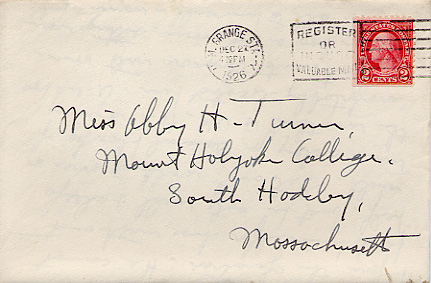 ORANGE STA.
DEC 2
PM
1926
REGISTER
OR
VALUABLE M
UNITED STATES POSTAGE
2 2
CENTS
Miss Abby H - Turner,
Mount Holyoke College.
South Hadley,
Massachusetts